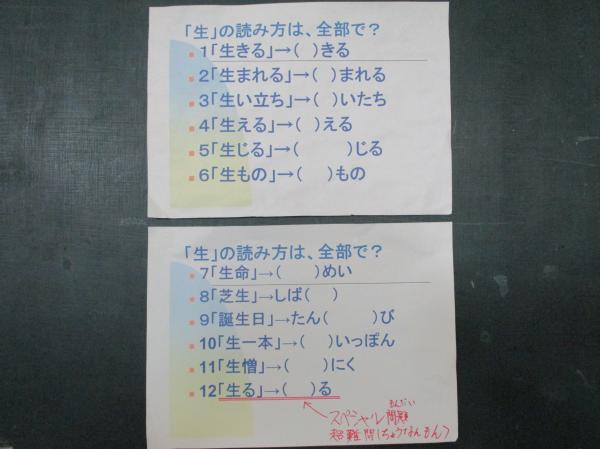 「生」の読み方は、全部で？
1「生きる」→( )きる
2「生まれる」→( )まれる
3「生い立ち」→( )いたち
4「生える」→( )える
5「生じる」→( )じる
6「生もの」→( )もの
「生」の読み方は、全部で？
7「生命」→( )めい
8「芝生」→しば( )
9「誕生日」→たん( )び
10「生一本」→( )いっぽん
11「生憎」→( )にく
12「生る」→( )る
もんだい
スペシャル問題
超難問(ちょうなんもん)